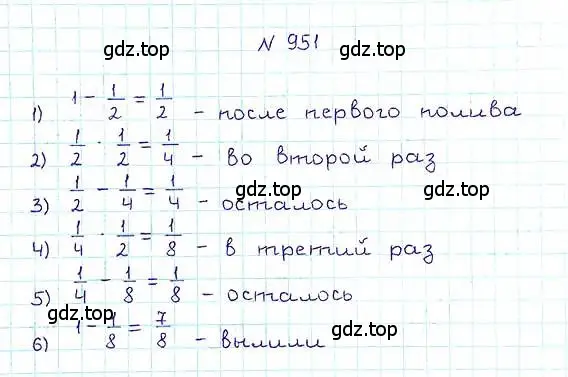 gdz.top № 951 gdz.top
1) 1 - 1/2 = 1/2 - после первого полива
2) 1/2 · 1/2 = 1/4 - во второй раз
3) 1/2 - 1/4 = 1/4 - осталось
gdz.top gdz.top
4) 1/4 · 1/2 = 1/8 - в третий раз
5) 1/4 - 1/8 = 1/8 - осталось
gdz.top gdz.top
6) 1 - 1/8 = 7/8 - вылили